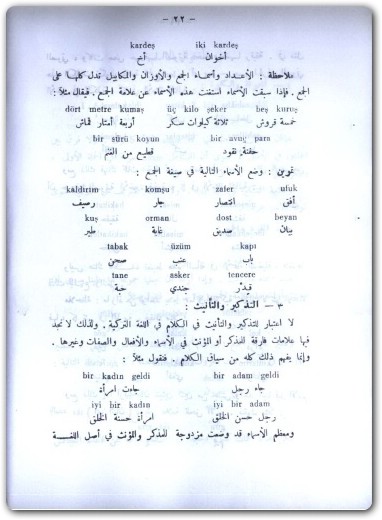 — ٢٢ —
kardeş iki kardeş
أخ أخوان
ملاحظة : الأعداد وأسماء الجمع والأوزان والمكاييل تدل كلها على
الجمع . فإذا سبقت الأسماء استغنت هذه الأسماء عن علامة الجمع . فيقال مثلاً :
dört metre kumaş üç kilo şeker beş kuruş
أربعة أمتار قماش ثلاثة كيلوات سكر خمسة قروش
bir sürü koyun bir avuç para
قطيع من الغنم حفنة نقود
تمرين : وضع الأسماء التالية في صيغة الجمع :
kaldırım komşu zafer ufuk
رصيف جار انتصار أفق
kuş orman dost beyan
طير غابة صديق بيان
tabak üzüm kapı
صحن عنب باب
tane asker tencere
حبة جندي قِدْر
٣ — التذكير والتأنيث :
لا اعتبار للتذكير والتأنيث في الكلام في اللغة التركية . ولذلك لا نجد
فيها علامات فارقة للمذكر أو المؤنث في الأسماء والأفعال والصفات وغيرها .
وإنما يفهم ذلك كله من سياق الكلام . فنقول مثلاً :
bir kadın geldi bir adam geldi
جاءت امرأة جاء رجل
iyi bir kadın iyi bir adam
امرأة حسنة الخلق رجل حسن الخلق
ومعظم الأسماء قد وضعت مزدوجة للمذكر والمؤنث في أصل اللغـــة